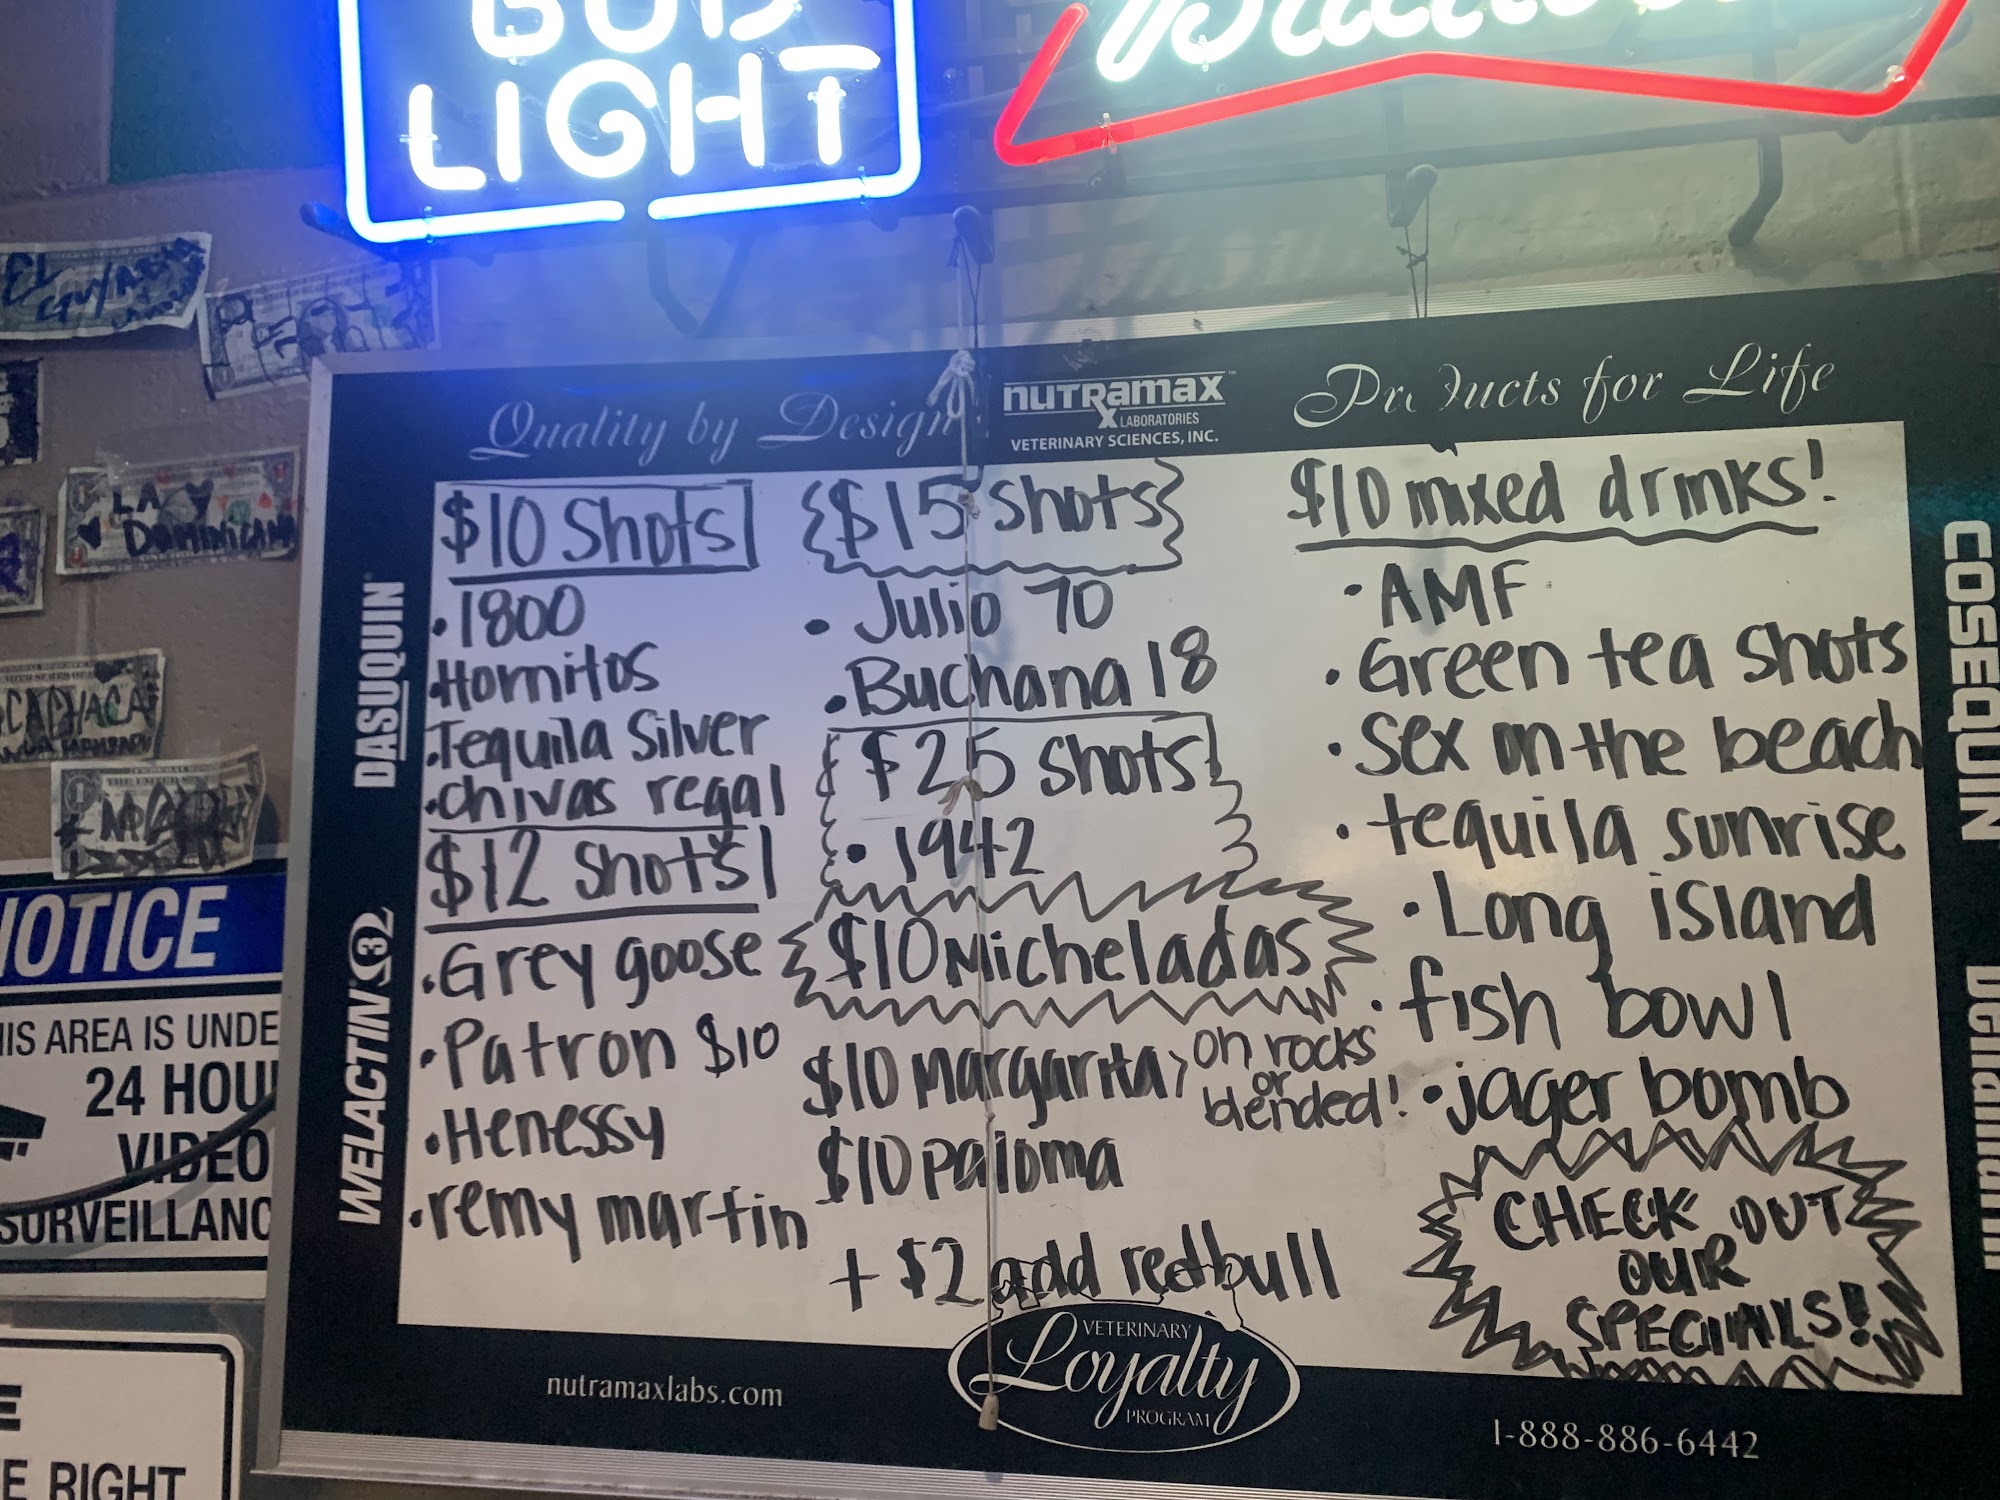 BUD
LIGHT
EL
LA
DOMINICANA
CACHACA
NOTICE
THIS AREA IS UNDE
24 HOU
VIDEO
SURVEILLANC
E
E RIGHT
Quality by Design
nutramax
LABORATORIES
VETERINARY SCIENCES, INC.
Products for Life
DASUQUIN
WELACTIN Ω3
COSEQUIN
Denamarin
$10 Shots
• 1800
• Hornitos
• Tequila Silver
• chivas regal
$12 Shots
• Grey goose
• Patron $10
• Henessy
• remy martin
$15 shots
• Julio 70
• Buchana 18
$25 shots
• 1942
$10 Micheladas
$10 Margarita > on rocks
or
blended!
$10 paloma
+ $2 add redbull
$10 mixed drinks!
• AMF
• Green tea shots
• sex on the beach
• tequila sunrise
• Long island
• fish bowl
• jager bomb
CHECK OUT
OUR
SPECIALS!
nutramaxlabs.com
VETERINARY
Loyalty
PROGRAM
1-888-886-6442